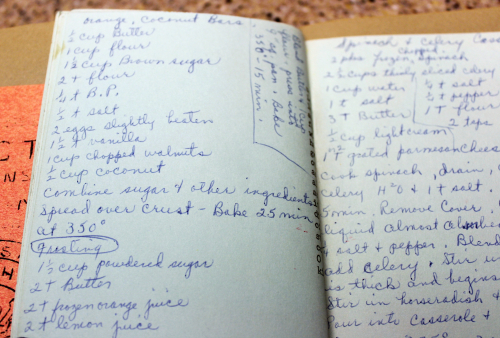 orange, Coconut Bars.
1/2 cup Butter
1 cup flour
1 1/2 cup Brown sugar
2 t flour
1/4 t B.P.
1/2 t salt
2 eggs slightly beaten
1 1/2 t vanilla
1 cup chopped walnuts
1/2 cup coconut
Combine sugar & other ingredients
Spread over Crust - Bake 25 min
at 350°
frosting
1 1/2 cup powdered sugar
2 T Butter
2 T frozen orange juice
2 t lemon juice
Blend Butter & Cup
flour - press into
9" sq. pan. Bake
350 - 15 min.
Spinach & Celery Cass
2 pkg frozen, chopped spinach
2 1/2 cups thinly sliced celery
1 cup water
1 t salt
3 T Butter
1/2 t salt
1/4 t pepper
1 T flour
1/2 cup light cream
2 tsps
1 T grated parmesan chees
Cook spinach, drain,
celery H2O & 1 t salt
5 min. Remove Cover
liquid almost
salt & pepper. Blend
add celery. Stir
is thick and begins
Stir in horseradish &
Pour into casserole &